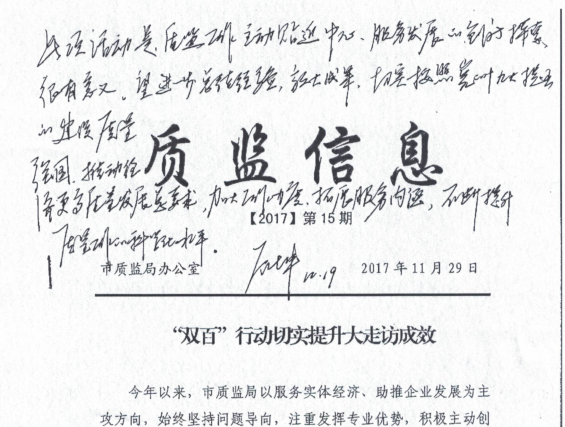 此项活动是质监工作主动贴近中心、服务发展的创新探索
很有意义。望进一步总结经验,放大成果,切实按照党的十九大提出
的建设质量
强国、推动经
济更高质量发展总要求,加大工作力度、拓展服务内涵,不断提升
质监工作的科学化水平。
质监信息
【2017】第15期
12.19
市质监局办公室
2017年11月29日
“双百”行动切实提升大走访成效
今年以来,市质监局以服务实体经济、助推企业发展为主
攻方向,始终坚持问题导向,注重发挥专业优势,积极主动创